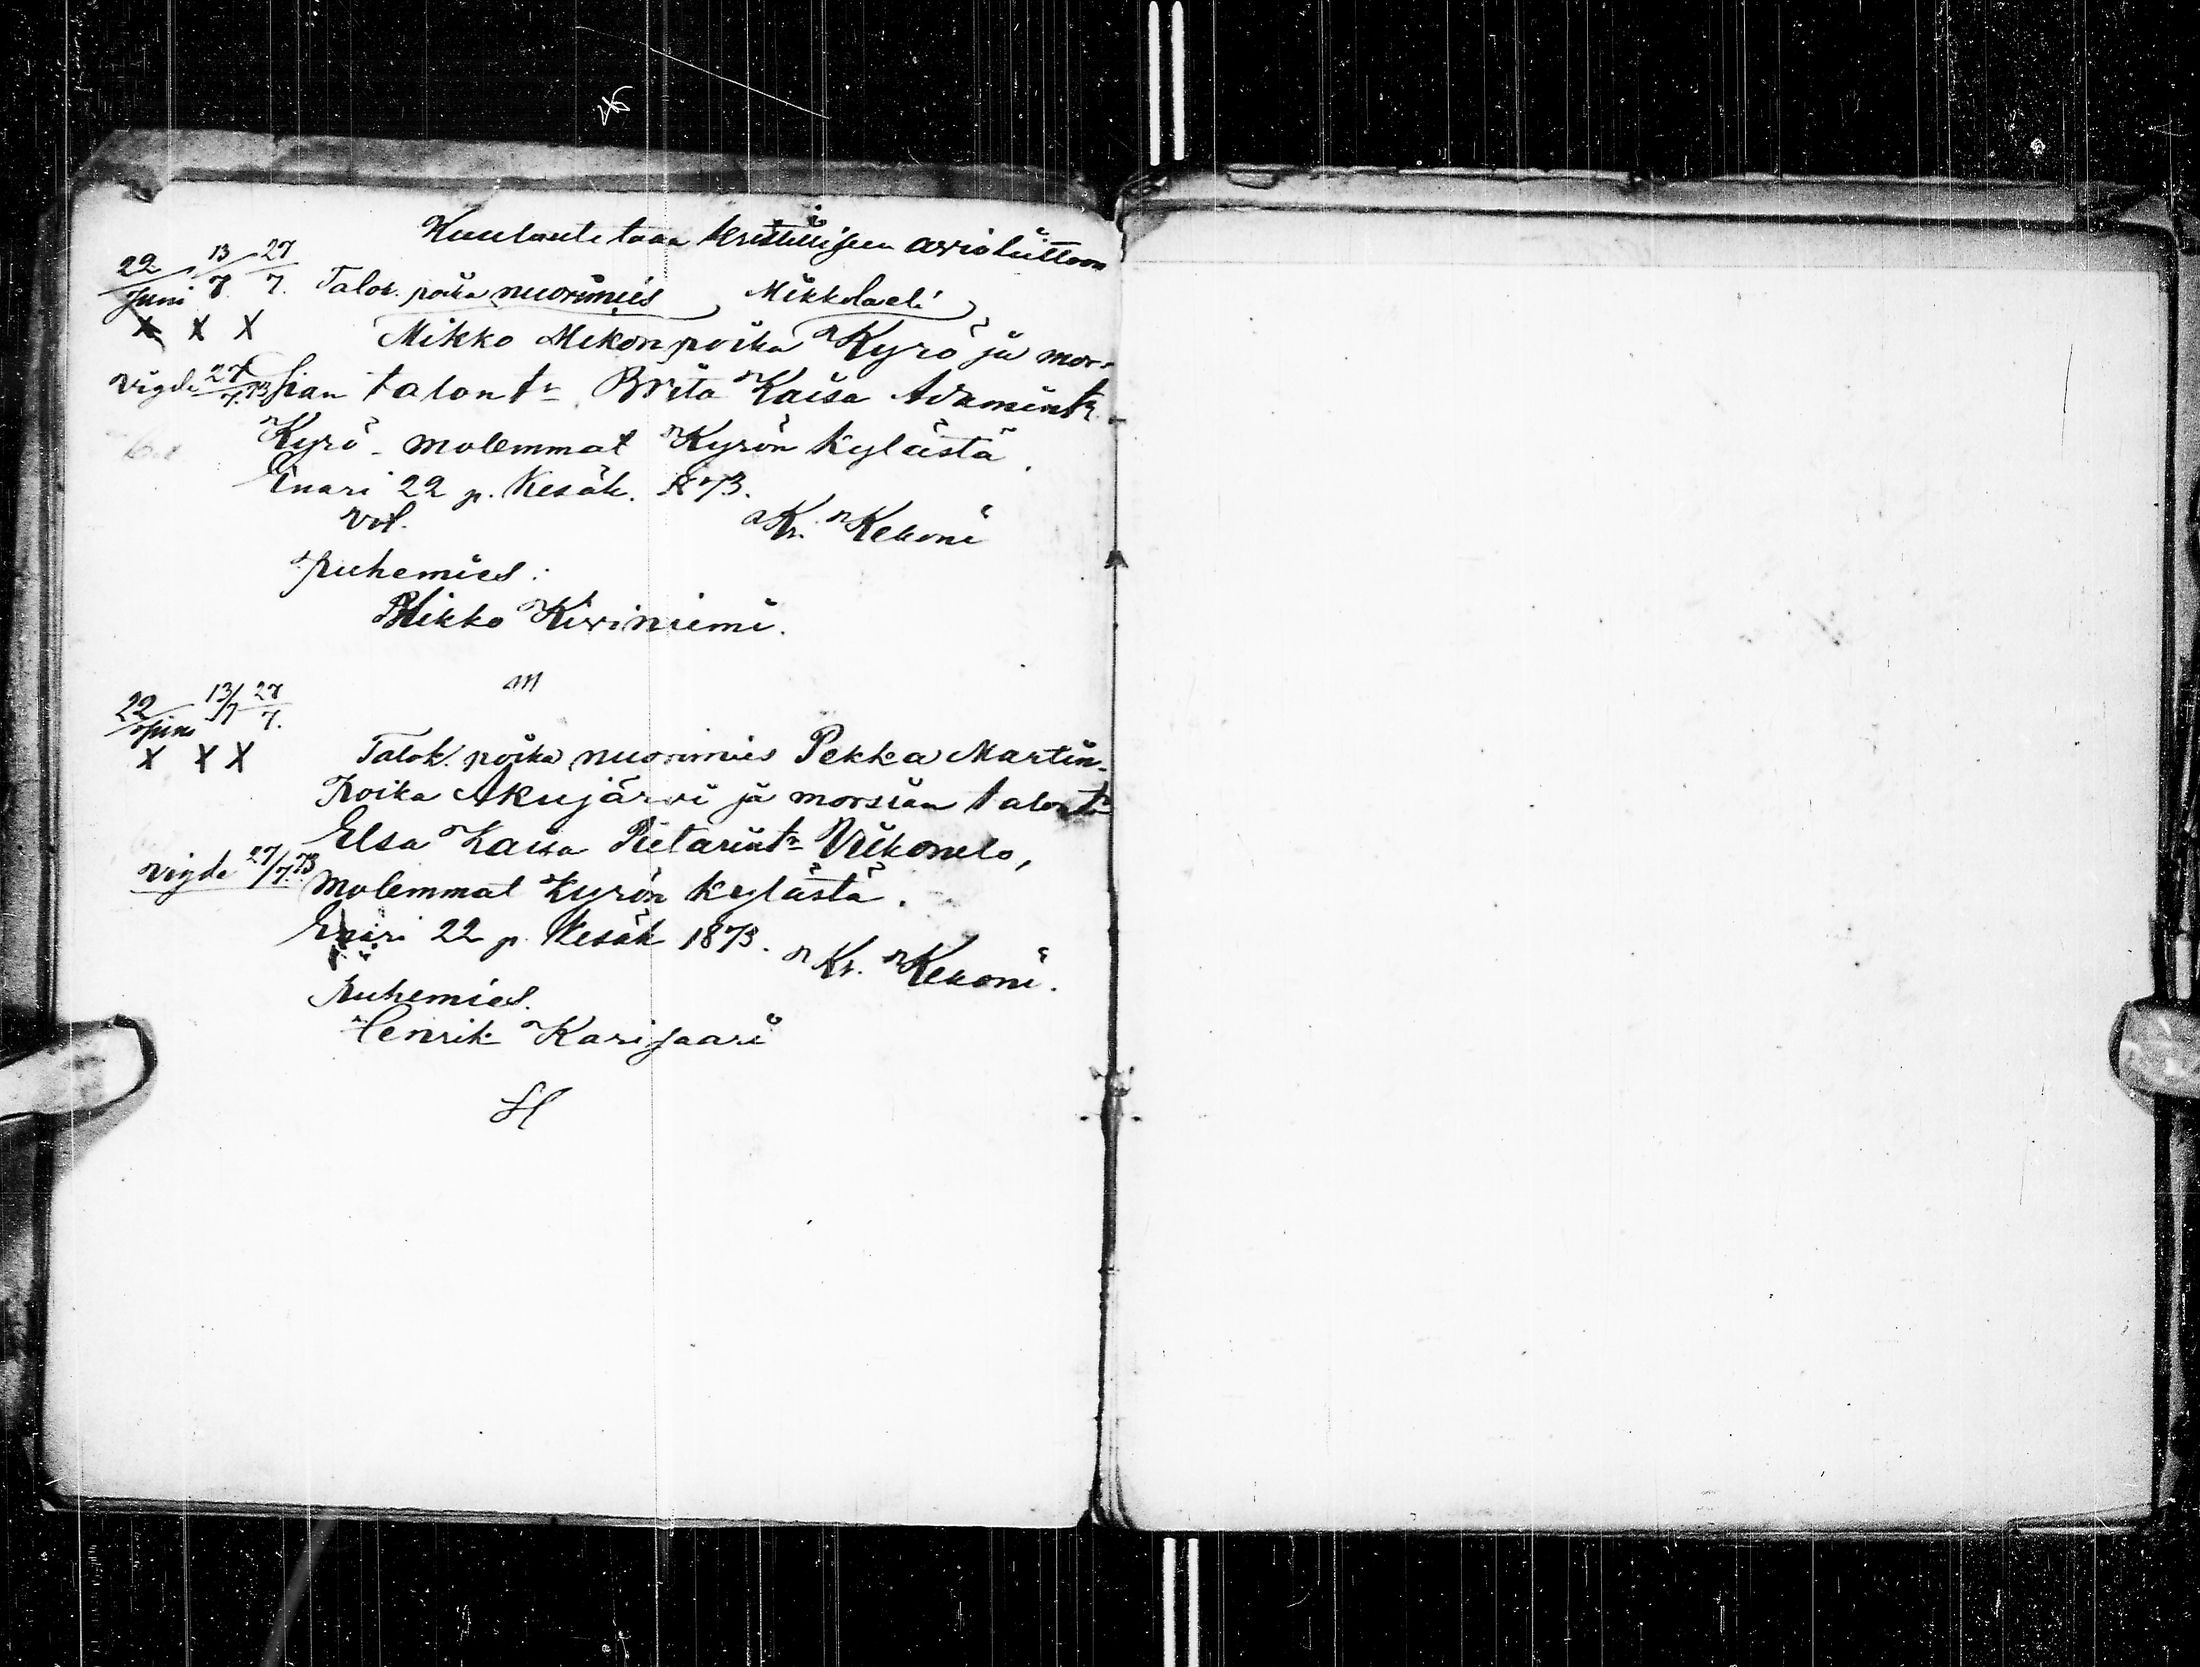 Kuulautetaan kristilliseen avioliittoon
22/Juni 13/7. 27/7.
Talok. poika nuorimies Mikkolaeli
X X X
Mikko Mikonpoika Kyrö ja mor-
vigde 27/7.73
sian talontr. Brita Kaisa Adamintr.
Kyrö - molemmat Kyrön kylästä.
Enari 22 p. Kesäk. 1873.
Kr. Kekoni
Puhemies:
Mikko Kiviniemi.
m
22/Juni 13/7 27/7.
X X X
Talok. poika nuorimies Pekka Martin-
Poika Akujärvi ja morsian talontr
Elsa Kaisa Pietarintr
vigde 27/7.73
molemmat Kyrön kylästä.
Enari 22 p. Kesäk 1873.
Kr. Kekoni.
Puhemies.
Henrik Karisaari